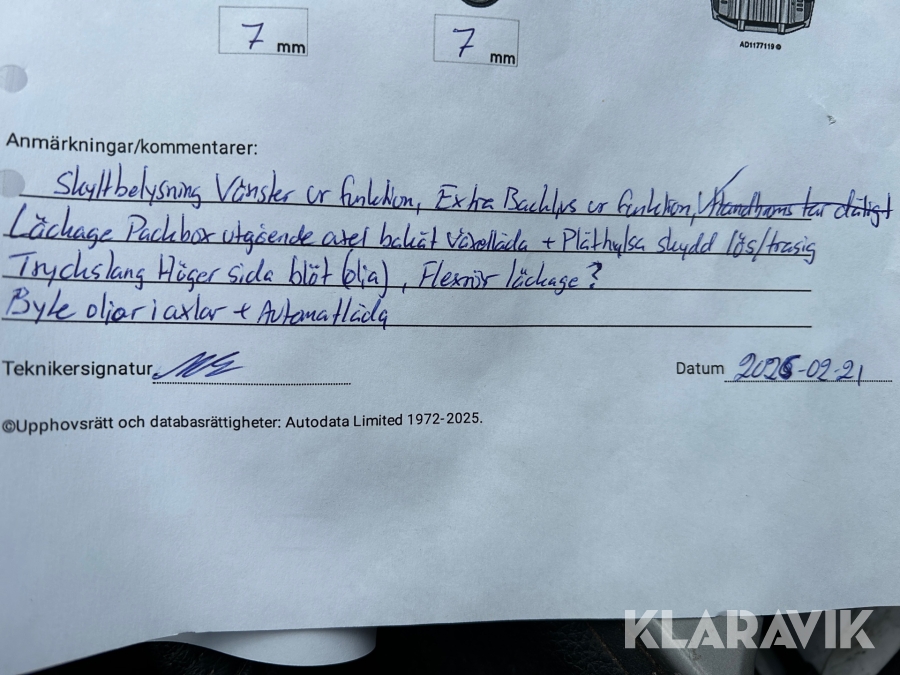 7 mm 7 mm
AD1177119
Anmärkningar/kommentarer:
Skyltbelysning Vänster ur funktion, Extra Backljus ur funktion, Handbroms tar dåligt
Läckage Packbox utgående axel bakåt Växellåda + Plåthylsa skydd lös/trasig
Tryckslang Höger sida blöt (olja), Flexrör läckage?
Byte oljor i axlar + Automatlåda
Teknikersignatur Datum 2025-02-21
©Upphovsrätt och databasrättigheter: Autodata Limited 1972-2025.
KLARAVIK